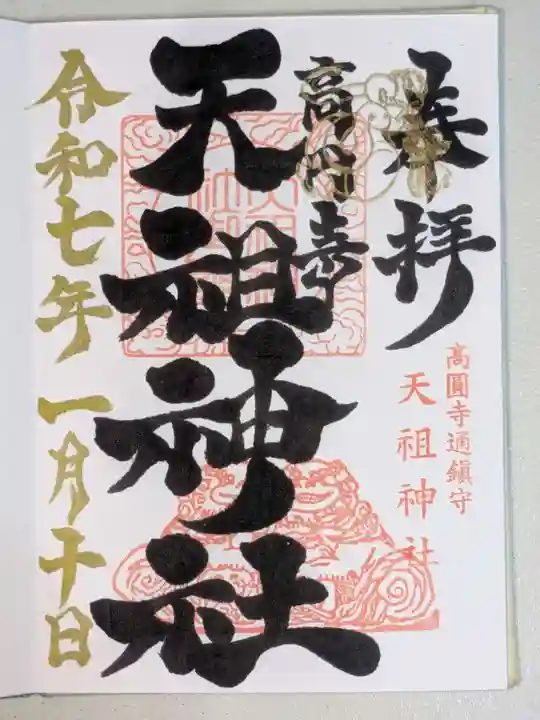 奉拝
高円寺
高圓寺通鎮守
天祖神社
天祖神社
令和七年一月十日